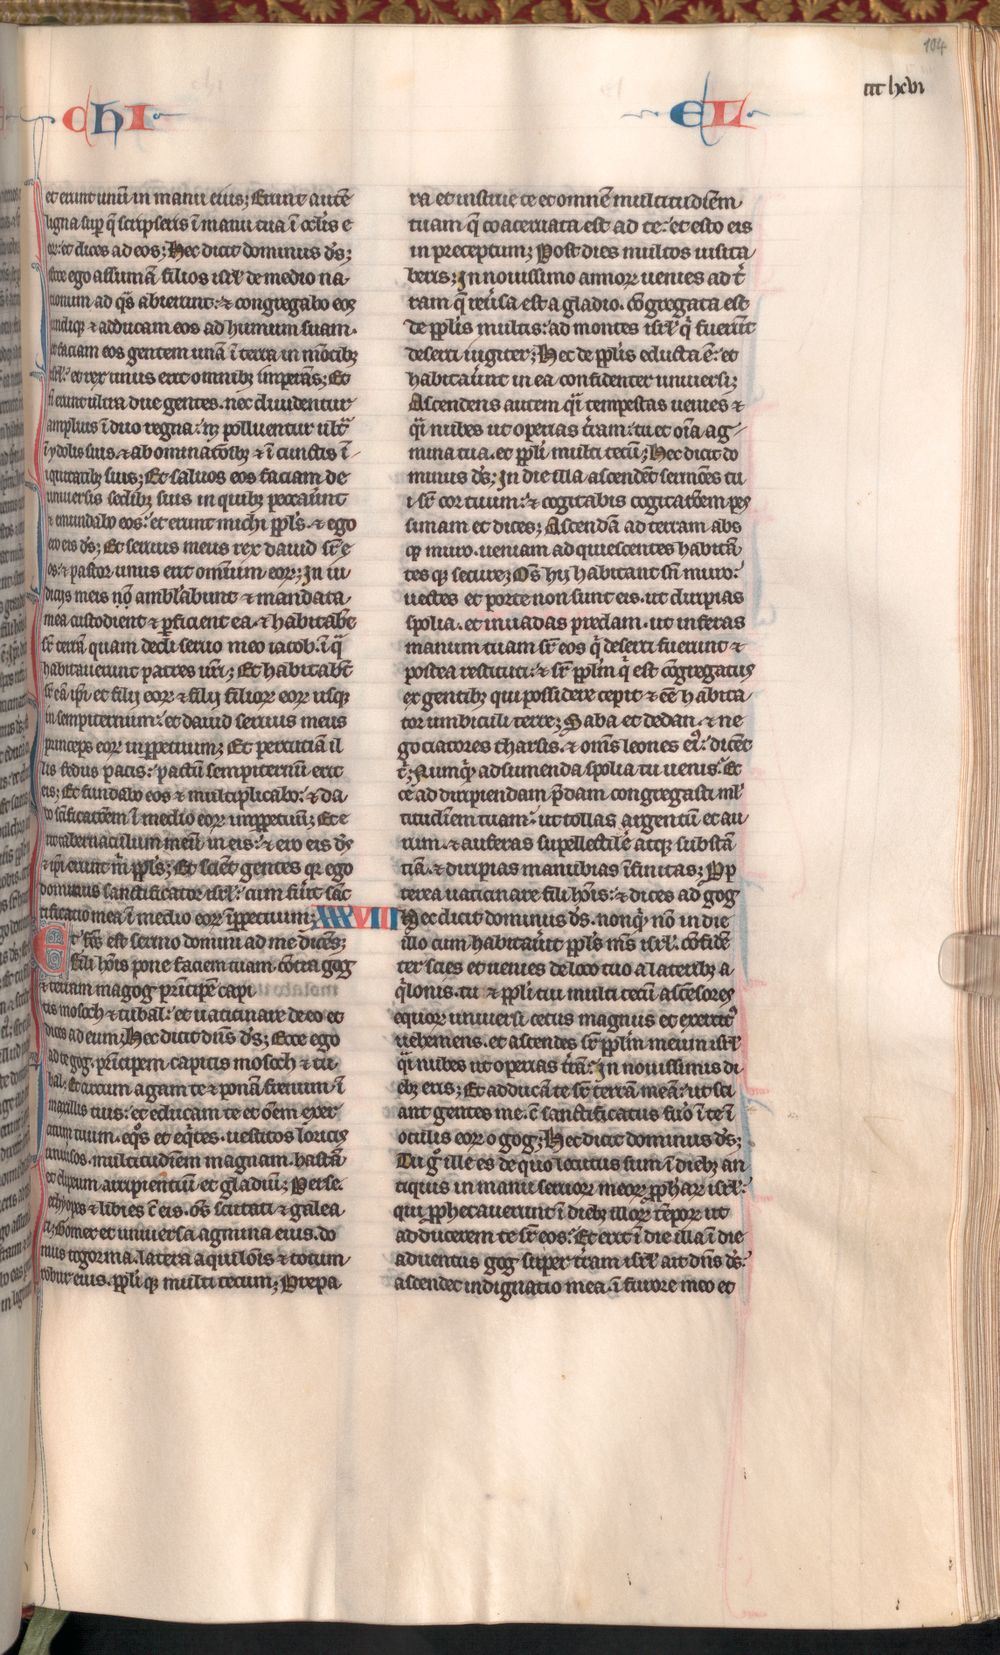 104
CHI
EL
et erunt unū in manu eius; Erunt autē
ligna sup̄ q̄ scripseris ī manu tua ī oc̄lis e
oꝝ: et dices ad eos; Hec dicit dominus d̄s;
Ecce ego assumā filios isrl̄ de medio na
tionum ad q̄s abierunt: ⁊ congregabo eos
undiqꝫ ⁊ adducam eos ad humum suam.
et faciam eos gentem unā ī terra in mōtibꝫ
isrl̄: et rex unus erit omnibꝫ imperās; Et
n̄ erunt ultra due gentes. nec diuidentur
amplius ī duo regna: nꝫ polluentur ult̄
ī ydolis suis. ⁊ abominatōibꝫ ⁊ ī cunctis ī
iquitatibꝫ suis; Et saluos eos faciam de
uniuersis sedibꝫ suis in quibꝫ peccauūnt
⁊ emundabo eos: et erunt michi pp̄ls. ⁊ ego
ero eis d̄s; Et seruus meus rex dauid sr̄ e
os: ⁊ pastor unus erit omnium eoꝝ; In iu
diciis meis nō amblābunt ⁊ mandata
mea custodient ⁊ p̄ficient ea. ⁊ habitabt̄
sr̄ terrā quam dedi seruo meo iacob. ī q̄
habitauerunt patres ur̄i; Et habitabt̄
sr̄ eā ip̄i et filij eoꝝ ⁊ filij filioꝝ eoꝝ usqꝫ
in sempiternum: et dauid seruus meus
princeps eoꝝ inp̄petuum; Et percutiā il
lis fedus pacis: pactū sempiternū erit
eis; Et fundabo eos ⁊ multiplicabo: ⁊ da
bo sc̄ificatōem ī medio eoꝝ inp̄petuū; Et e
rit tabernaculum meū in eis: ⁊ ero eis d̄s
⁊ ip̄i erunt m̄ pp̄ls; Et scient gentes qꝛ ego
dominus sanctificator isrl̄: cum fūit sāc
tificatio mea ī medio eoꝝ īp̄petuum; XXXVIII
Et fc̄s est sermo domini ad me dicēs;
fili hōis pone faciem tuam cōtra gog
⁊ terram magog prīcipē capi
tis mosoch ⁊ tubal: et uaticinare de eo et
dices ad eum; Hec dicit dn̄s d̄s; Ecce ego
ad te gog. prīcipem capitis mosoch ⁊ tu
bal. Et circum agam te ⁊ ponā frenum ī
maxillis tuis: et educam te et oēm exer
citum tuum. eq̄os et eq̄ites. uestitos loricis
uniūsos. multitudīem magnam. hastā
et clipeum arripientiū et gladiū; Perse.
ethyopes ⁊ libies c̄ eis. oēs scutati ⁊ galea
ti; Gomer et uniuersa agmina eius. do
mus togorma. latera aquilōis ⁊ totum
robur eius. pp̄li qꝫ multi tecum; Prepa
ra et instrue te et omnē multitudīem
tuam q̄ coaceruata est ad te: et esto eis
in preceptum; Post dies multos uisita
beris; In nouissimo annoꝝ uenies ad t̄
ram q̄ reūsa est a gladio. cōgregata est
de pp̄lis multis: ad montes isrl̄ q̄ fuerūt
deserti iugiter; Hec de pp̄lis educta ē: et
habitauūnt in ea confidenter uniuersi;
Ascendens autem q̄i tempestas uenies ⁊
q̄i nubes ut operias t̄ram: tu et oīa ag
mina tua. et pp̄li multi tecū; Hec dicit do
minus d̄s; In die illa ascendēt sermōes tu
i sr̄ cor tuum: ⁊ cogitabis cogitatōem pes
simam et dices; Ascendā ad terram abs
qꝫ muro. ueniam ad quiescentes habitā
tes qꝫ secure; Oēs hij habitant sn̄ muro:
uectes et porte non sunt eis. ut diripias
spolia. et inuadas predam. ut inferas
manum tuam sr̄ eos q̄ deserti fuerunt ⁊
postea restituti: ⁊ sr̄ pp̄lm q̄ est cōgregatus
ex gentibꝫ qui possidere cepit ⁊ eē habita
tor umbiculi terre; Saba et dedan. ⁊ ne
gociatores tharsis. ⁊ om̄s leones ei: dicēt
t̄; Numqꝫ ad sumenda spolia tu uenis: Ec
ce ad diripiendam p̄dam congregasti ml̄
titudīem tuam: ut tollas argentū et au
rum. ⁊ auferas supellectilē atqꝫ substā
tiā. ⁊ diripias manubias īfinitas; Pp̄
terea uaticinare fili hōis: ⁊ dices ad gog
Hec dicit dominus d̄s. nonqꝫ nō in die
illo cum habitauūt pp̄ls m̄s isrl̄. cōfidē
ter scies et uenies de loco tuo a lateribꝫ a
q̄lonis. tu ⁊ pp̄li tui multi tecū ascēsores
equoꝝ uniuersi. cetus magnus et exercit᾽
uehemens. et ascendes sr̄ pp̄lm meum isrl̄
q̄i nubes ut operias t̄rā: In nouissimis di
ebꝫ eris; Et adducā te sr̄ terrā meā: ut sci
ant gentes me. c̄ sanctificatus fūo ī te ī
oculis eoꝝ o gog; Hec dicit dominus d̄s;
Tu g̊ ille es de quo locutus sum ī diebꝫ an
tiquis in manu seruoꝝ meoꝝ pp̄haꝝ isrl̄:
qui pp̄hetauerunt ī diebꝫ illoꝝ tēpoꝝ ut
adducerem te sr̄ eos; Et erit ī die illa ī die
aduentus gog super t̄ram isrl̄ ait dn̄s d̄s:
ascendet indignatio mea. ī furore meo et